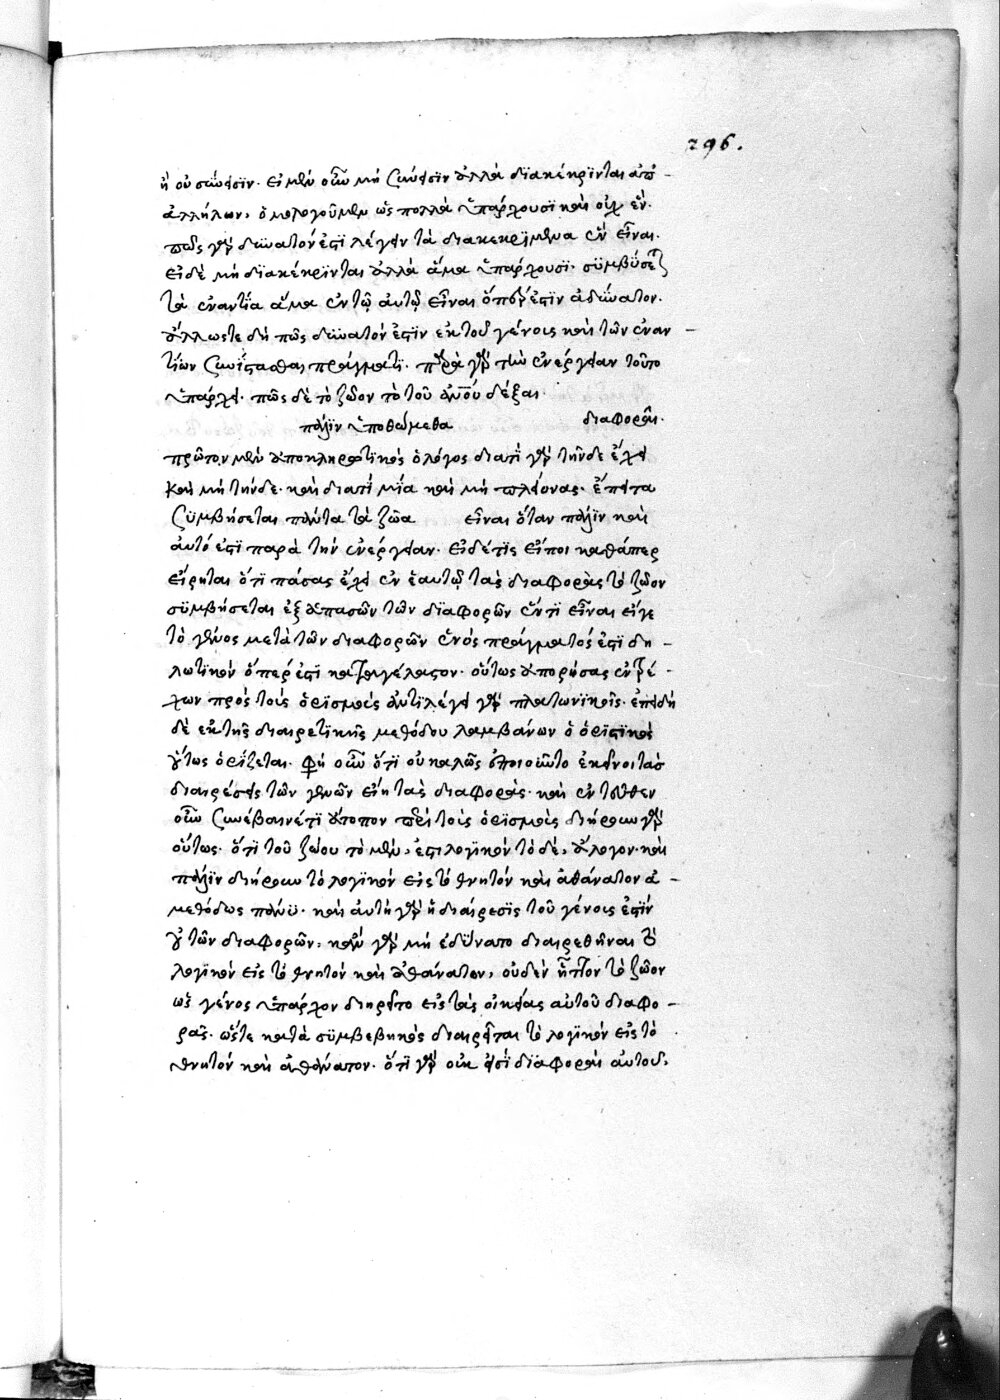 296.
ἢ οὐ σύνεισιν. εἰ μὲν οὖν μὴ σύνεισιν ἀλλὰ διακέκρινται ἀπ᾽
ἀλλήλων, ὁμολογοῦμεν ὡς πολλὰ ὑπάρχουσι καὶ οὐχ ἕν.
πῶς γὰρ δυνατόν ἐστι λέγειν τὰ διακεκριμένα ἓν εἶναι.
εἰ δὲ μὴ διακέκρινται ἀλλὰ ἅμα ὑπάρχουσι. συμβήσεται
τὰ ἐναντία ἅμα ἐν τῷ αὐτῷ εἶναι ὅπερ ἐστὶν ἀδύνατον.
ἄλλωστε δὴ πῶς δυνατόν ἐστιν ἐκ τοῦ γένους καὶ τῶν ἐναν-
τίων συνίστασθαι πράγματι. παρὰ γὰρ τὴν ἐνέργειαν τοῦτο
ὑπάρχει. πῶς δὲ τὸ ζῶον τὸ τοῦ ἀνου δέξαι.
πάλιν ὑποθώμεθα διαφοράν.
πρῶτον μὲν ἀποκληρωτικὸς ὁ λόγος διατί γὰρ τήνδε ἔχει
καὶ μὴ τήνδε. καὶ διατί μία καὶ μὴ πλείονας. ἔπειτα
συμβήσεται πάντα τὰ ζῶα εἶναι ὅταν πάλιν καὶ
αὐτό ἐστι παρὰ τὴν ἐνέργειαν. εἰ δέ τις εἴποι καθάπερ
εἴρηται ὅτι πάσας ἔχει ἐν ἑαυτῷ τὰς διαφορὰς τὸ ζῶον
συμβήσεται ἐξ ἁπασῶν τῶν διαφορῶν ἕν τι εἶναι εἴγε
τὸ γένος μετὰ τῶν διαφορῶν ἑνὸς πράγματός ἐστι δη-
λωτικὸν ὅπερ ἐστὶ καταγέλαστον. οὕτως ἀπορήσας ἐντρέ-
χων πρὸς τοὺς ὁρισμοὺς ἀντιλέγει γὰρ πλατωνικοῖς. ἐπειδὴ
δὲ ἐκ τῆς διαιρετικῆς μεθόδου λαμβάνων ὁ ὁριστικὸς
οὕτως ὁρίζεται. φησὶ οὖν ὅτι οὐ καλῶς ἐποιοῦντο ἐκεῖνοι τὰς
διαιρέσεις τῶν γενῶν εἰς τὰς διαφοράς. καὶ ἐντεῦθεν
οὖν συνέβαινέ τι ἄτοπον περὶ τοὺς ὁρισμοὺς διήρουν γὰρ
οὕτως. ὅτι τοῦ ζώου τὸ μέν, ἐστι λογικὸν τὸ δὲ, ἄλογον. καὶ
πάλιν διήρουν τὸ λογικὸν εἰς τὸ θνητὸν καὶ ἀθάνατον ἀ-
μεθόδως πάνυ. καὶ αὐτὴ γὰρ ἡ διαίρεσις τοῦ γένους ἐστὶν
οὐ τῶν διαφορῶν, κἂν γὰρ μὴ ἐδύνατο διαιρεθῆναι τὸ
λογικὸν εἰς τὸ θνητὸν καὶ ἀθάνατον, οὐδὲν ἧττον τὸ ζῶον
ὡς γένος ὑπάρχον διῃρεῖτο εἰς τὰς οἰκείας αὐτοῦ διαφο-
ράς. ὥστε κατὰ συμβεβηκὸς διαιρεῖται τὸ λογικὸν εἰς τὸ
θνητὸν καὶ ἀθάνατον. ὅτι γὰρ οὐκ εἰσὶ διαφοραὶ αὐτοῦ,